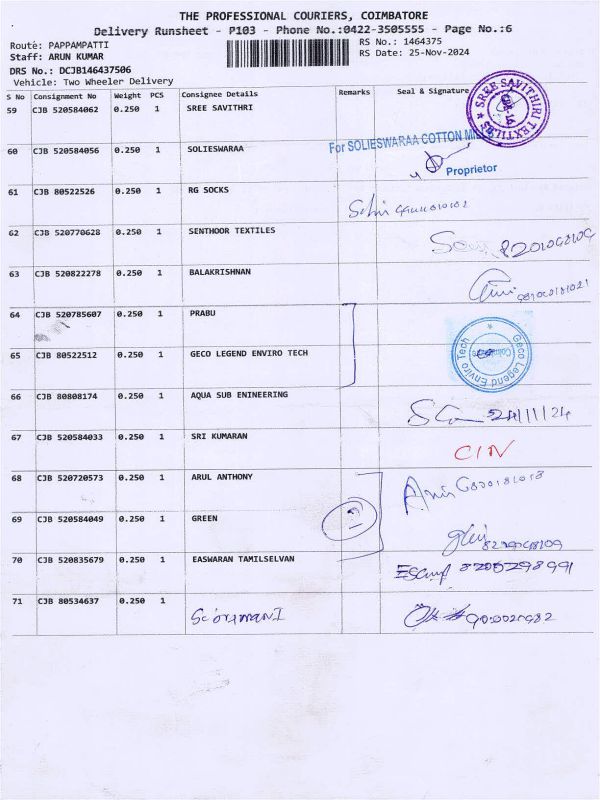 THE PROFESSIONAL COURIERS, COIMBATORE
Delivery Runsheet - P103 - Phone No.:0422-3505555 - Page No.:6
Route: PAPPAMPATTI
RS No.: 1464375
Staff: ARUN KUMAR
RS Date: 25-Nov-2024
DRS No.: DCJB146437506
Vehicle: Two Wheeler Delivery
S No Consignment No Weight PCS Consignee Details Remarks Seal & Signature
59 CJB 520584062 0.250 1 SREE SAVITHRI
SREE SAVITHIRI TEXTILES
60 CJB 520584056 0.250 1 SOLIESWARAA
For SOLIESWARAA COTTON MILLS
Proprietor
61 CJB 80522526 0.250 1 RG SOCKS
62 CJB 520770628 0.250 1 SENTHOOR TEXTILES
63 CJB 520822278 0.250 1 BALAKRISHNAN
64 CJB 520785607 0.250 1 PRABU
65 CJB 80522512 0.250 1 GECO LEGEND ENVIRO TECH
Geco Legend Enviro Tech
Coimbatore
66 CJB 80808174 0.250 1 AQUA SUB ENINEERING
24/11/24
67 CJB 520584033 0.250 1 SRI KUMARAN
CIN
68 CJB 520720573 1 0.250 ARUL ANTHONY
69 CJB 520584049 0.250 1 GREEN
70 CJB 520835679 0.250 1 EASWARAN TAMILSELVAN
71 CJB 80534637 0.250 1